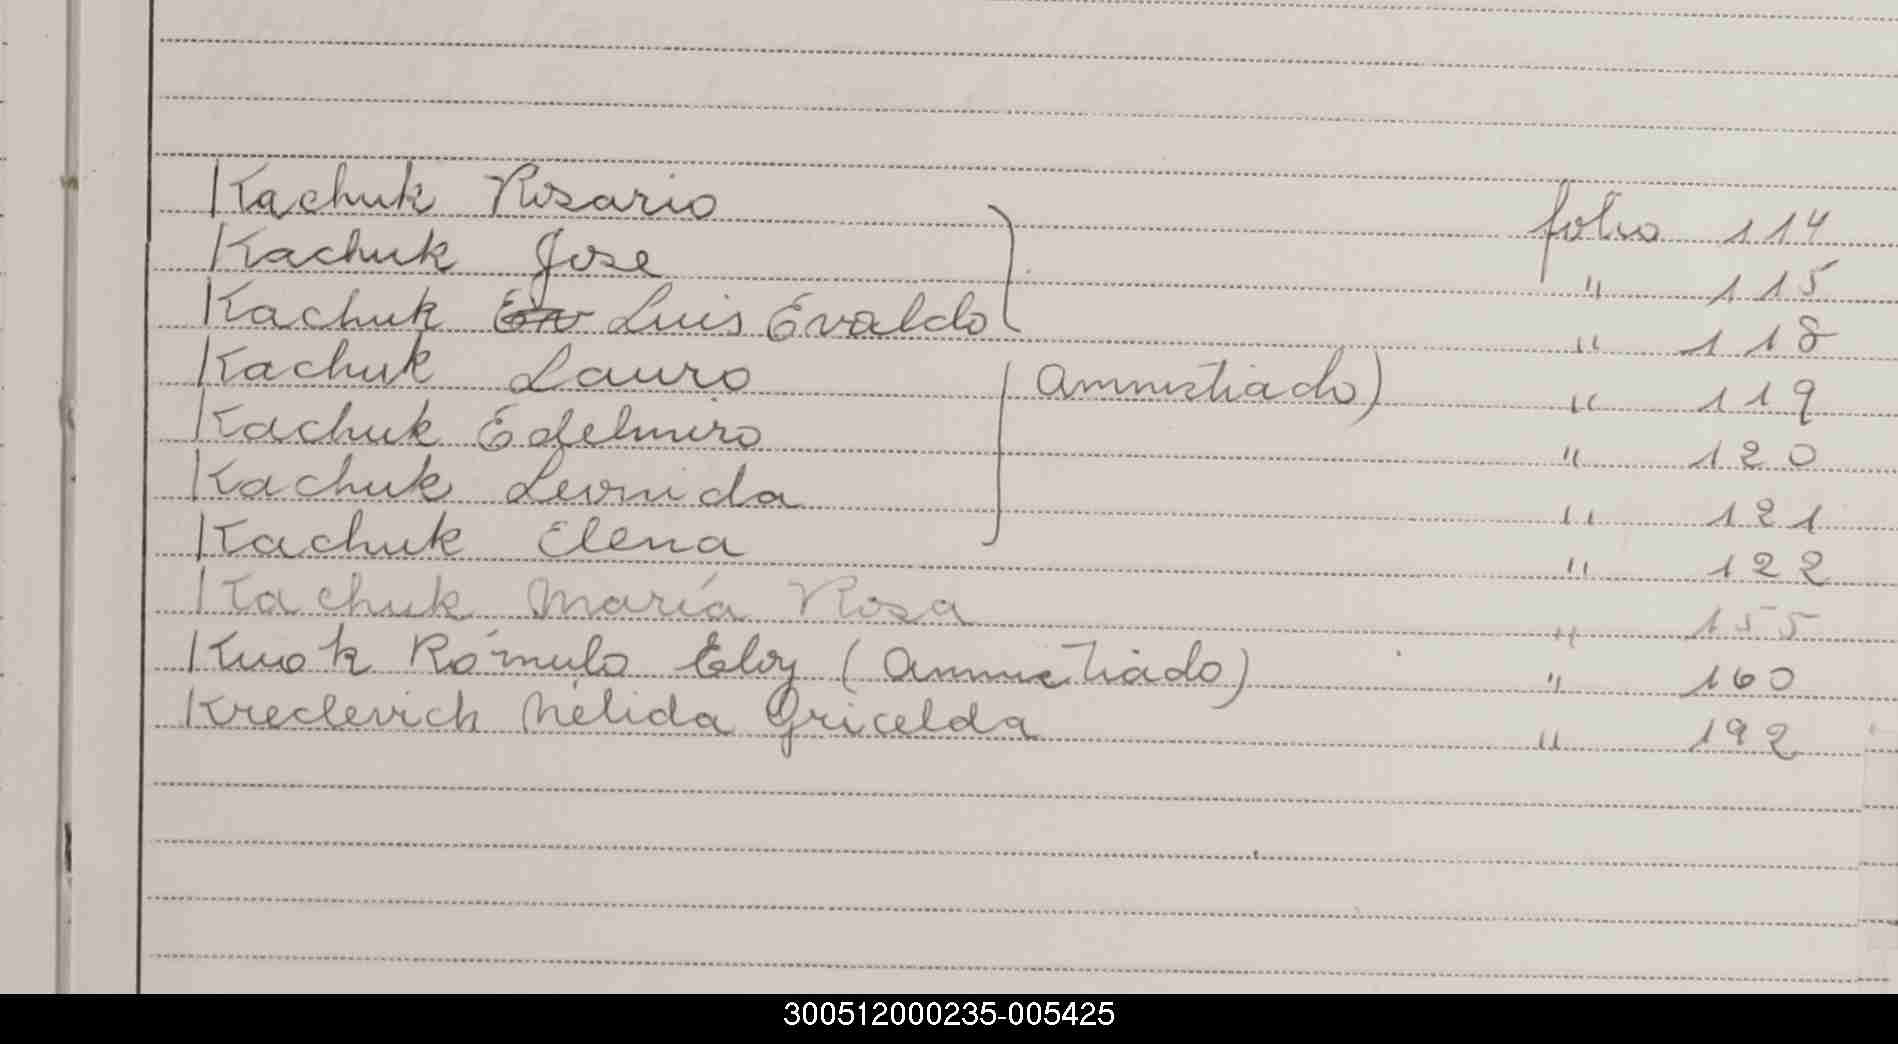 Kachuk Rosario folio 114
Kachuk Jose " 115
Kachuk Ev Luis Evaldo " 118
Kachuk Lauro (Amnistiado) " 119
Kachuk Edelmiro " 120
Kachuk Leonida " 121
Kachuk Elena " 122
Kachuk María Rosa " 155
Kuok Rómulo Eloy (Amnistiado) " 160
Kreclevich Nélida Gricelda " 192
300512000235-005425